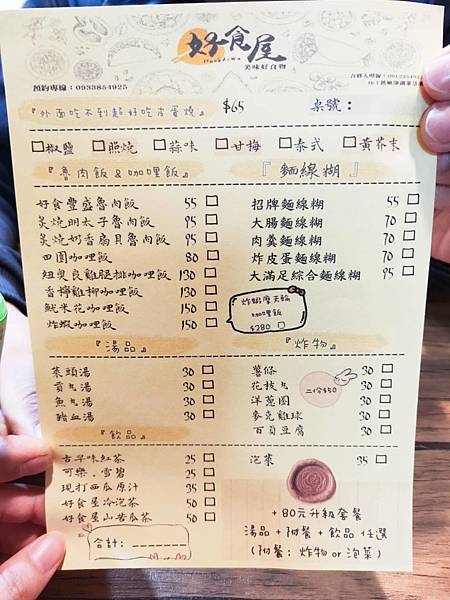 好食屋
美味好食物
預約專線：0933854925
『外面吃不到超好吃皮蛋燒』 $65 桌號：
□椒鹽 □照燒 □蒜味 □甘梅 □泰式 □黃芥末
『魯肉飯&咖哩飯』
好食豐盛魯肉飯 55 □
炙燒明太子魯肉飯 95 □
炙燒奶香扇貝魯肉飯 95 □
四圓咖哩飯 80 □
紐奧良雞腿排咖哩飯 130 □
香檸雞柳咖哩飯 130 □
魷米花咖哩飯 150 □
炸蝦咖哩飯 150 □
『麵線糊』
招牌麵線糊 55 □
大腸麵線糊 70 □
肉羹麵線糊 70 □
炸皮蛋麵線糊 70 □
大滿足綜合麵線糊 95 □
炸蝦摩天輪
咖哩飯
$280 □
『湯品』
菜頭湯 30 □
貢丸湯 30 □
魚丸湯 30 □
豬血湯 30 □
『炸物』
薯條 30 □
花枝丸 30 □
洋蔥圈 30 □
麥克雞球 30 □
百頁豆腐 30 □
二份$50
『飲品』
古早味紅茶 25 □
可樂．雪碧 25 □
現打西瓜原汁 35 □
好食屋冷泡茶 50 □
好食屋山苦瓜茶 50 □
合計：
泡菜 35 □
+80元升級套餐
湯品+附餐+飲品 任選
(附餐：炸物 or 泡菜)